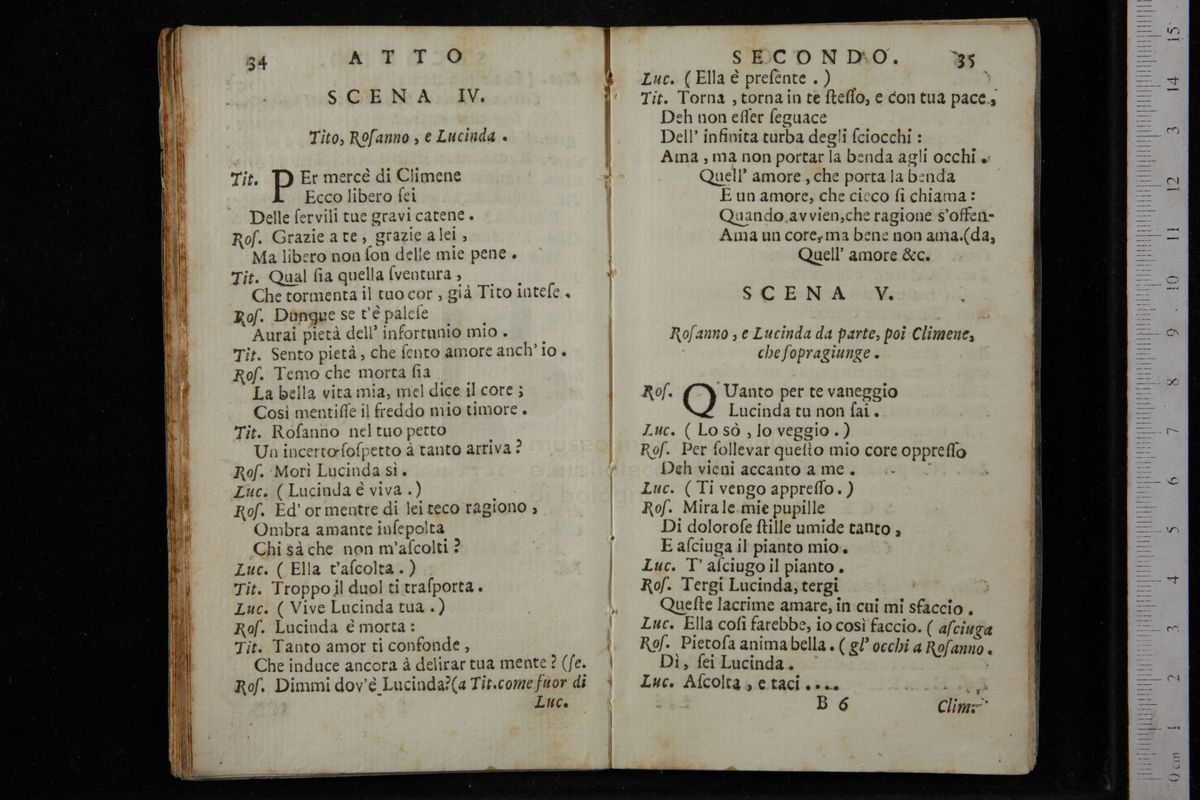 34 ATTO
SCENA IV.
Tito, Roſanno, e Lucinda.
Tit. PEr mercè di Climene
Ecco libero ſei
Delle ſervili tue gravi catene.
Roſ. Grazie a te, grazie a lei,
Ma libero non ſon delle mie pene.
Tit. Qual ſia quella ſventura,
Che tormenta il tuo cor, già Tito inteſe.
Roſ. Dunque se t'è paleſe
Aurai pietà dell' infortunio mio.
Tit. Sento pietà, che ſento amore anch' io.
Roſ. Temo che morta ſia
La bella vita mia, mel dice il core;
Così mentiſſe il freddo mio timore.
Tit. Roſanno nel tuo petto
Un incerto ſoſpetto à tanto arriva?
Roſ. Morì Lucinda sì.
Luc. (Lucinda è viva.)
Roſ. Ed' or mentre di lei teco ragiono,
Ombra amante inſepolta
Chi sà che non m'aſcolti?
Luc. (Ella t'aſcolta.)
Tit. Troppo il duol ti traſporta.
Luc. (Vive Lucinda tua.)
Roſ. Lucinda è morta:
Tit. Tanto amor ti confonde,
Che induce ancora à delirar tua mente? (ſe.
Roſ. Dimmi dov'è Lucinda?(a Tit.come fuor di
Luc.
SECONDO. 35
Luc. (Ella è preſente.)
Tit. Torna, torna in te ſteſſo, e con tua pace,
Deh non eſſer ſeguace
Dell' infinita turba degli ſciocchi:
Ama, ma non portar la benda agli occhi.
Quell' amore, che porta la benda
E un amore, che cieco ſi chiama:
Quando avvien,che ragione s'offen-
Ama un core, ma bene non ama.(da,
Quell' amore &c.
SCENA V.
Roſanno, e Lucinda da parte, poi Climene,
che ſopragiunge.
Roſ. QUanto per te vaneggio
Lucinda tu non ſai.
Luc. (Lo sò, lo veggio.)
Roſ. Per ſollevar queſto mio core oppreſſo
Deh vieni accanto a me.
Luc. (Ti vengo appreſſo.)
Roſ. Mira le mie pupille
Di doloroſe ſtille umide tanto,
E aſciuga il pianto mio.
Luc. T' aſciugo il pianto.
Roſ. Tergi Lucinda, tergi
Queſte lacrime amare, in cui mi sfaccio.
Luc. Ella coſi farebbe, io così faccio. (aſciuga
Roſ. Pietoſa anima bella. (gl' occhi a Roſanno.
Dì, ſei Lucinda.
Luc. Aſcolta, e taci....
B 6 Clim.